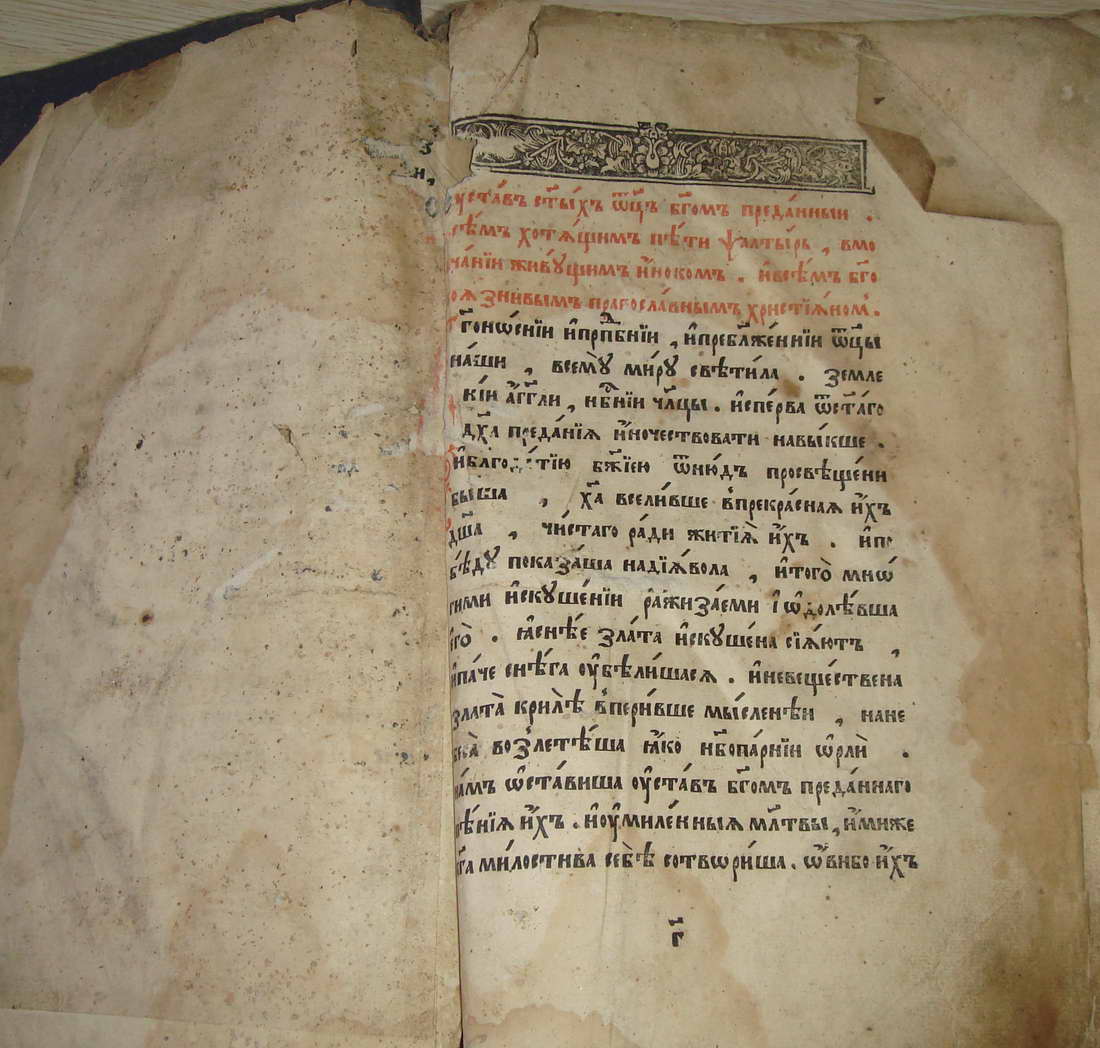 оуста́въ ст҃ы́хъ ѿц҃ъ бг҃омъ преда́нныи .
все́мъ хотѧ́щимъ пѣ́ти ѱалты́рь , вмо
лча́нїи живꙋ́щимъ и҆́нокомъ . и҆всѣ́мъ бг҃о
боѧзнивымъ правосла́внымъ христїѧ́ном .
Бг҃оно́снїи и҆прпⷣбнїи , и҆пребл҃же́ннїи ѿц҃ы
на́ши , всемꙋ̀ ми́рꙋ свѣти́ла . земле
кі́и а҆́гг҃ли , нб҃нїи чл҃цы . и҆спе́рва ѿст҃а́го
дх҃а преда́нїѧ и҆́ночествовати навы́кше .
и҆благода́тїю бж҃їею ѿню́дъ просвѣще́ни
бы́ша , хⷭ҇а всели́вше в̾прекра́снаѧ и҆́хъ
дш҃а , чи́стаго ра́ди житїѧ̀ и҆́хъ . и҆по
бѣ́дꙋ показа́ша надїѧ́вола , и҆того̀ мнѡ́
гими и҆скꙋше́нїи ражиза́еми і҆ѡ҆долѣ́вша
є҆го̀ . ꙗ҆снѣ́е зла́та и҆скꙋше́на сїѧ́ютъ ,
и҆па́че снѣ́га оу҆бѣли́шасѧ . и҆невеще́ствена
злата̀ крилѣ̀ в̾пери́вше мы́сленѣи , нане
беса̀ воз̾летѣ́ша ꙗ҆́ко нб҃опа́рнїи ѻ҆рлѝ .
на́мъ ѡ҆ста́виша оу҆ста́въ бг҃омъ преда́ннаго
пѣ́нїѧ и҆́хъ . и҆оу҆миле́нныѧ мл҃твы , и҆́миже
бг҃а ми́лостива себѣ̀ сотвори́ша . ѻ҆́вибо и҆́хъ
г҃